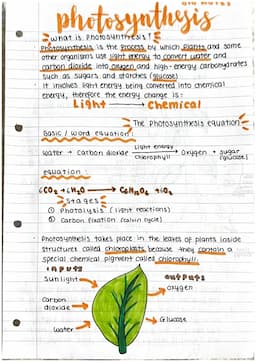 photosynthesis
what is photosynthesis?
Photosynthesis is the process by which plants and some
other organisms use light energy to convert water and
carbon dioxide into oxygen and high-energy carbohydrates
such as sugars and starches (glucose)
It involves light energy being converted into chemical
energy, therefore the energy change is:
Light → Chemical
The Photosynthesis equation
Basic / word equation:
water + carbon dioxide light energy chlorophyll oxygen + sugar (glucose)
equation:
6CO₂ + 6H₂O → C₆H₁₂O₆ + 6O₂
stages
① Photolysis (light reactions)
② Carbon fixation (calvin cycle)
Photosynthesis takes place in the leaves of plants inside
structures called chloroplasts because they contain a
special chemical pigment called chlorophyll.
inputs
outputs
Sunlight
oxygen
Carbon
dioxide
Glucose
water